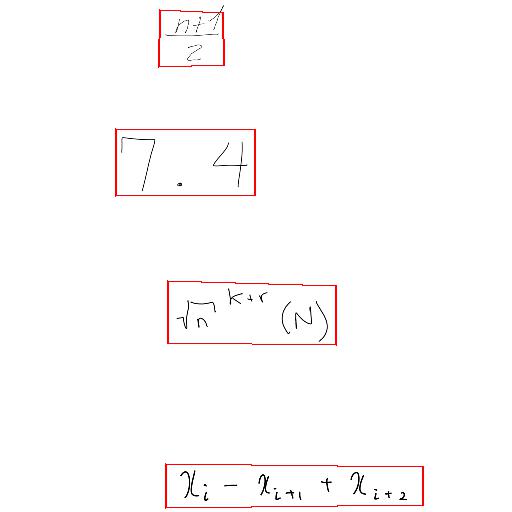 \frac{n+1}{2}
7.4
\sqrt{n}^{k+r}(N)
x_i - x_{i+1} + x_{i+2}